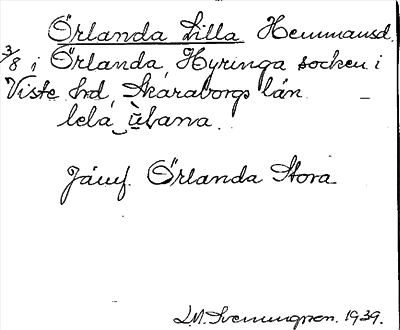 Örlanda Lilla Hemmansd.
3/8 i Örlanda, Hyringa socken i
Viste hrd, Skaraborgs län.
Jämf. Örlanda Stora
1939.